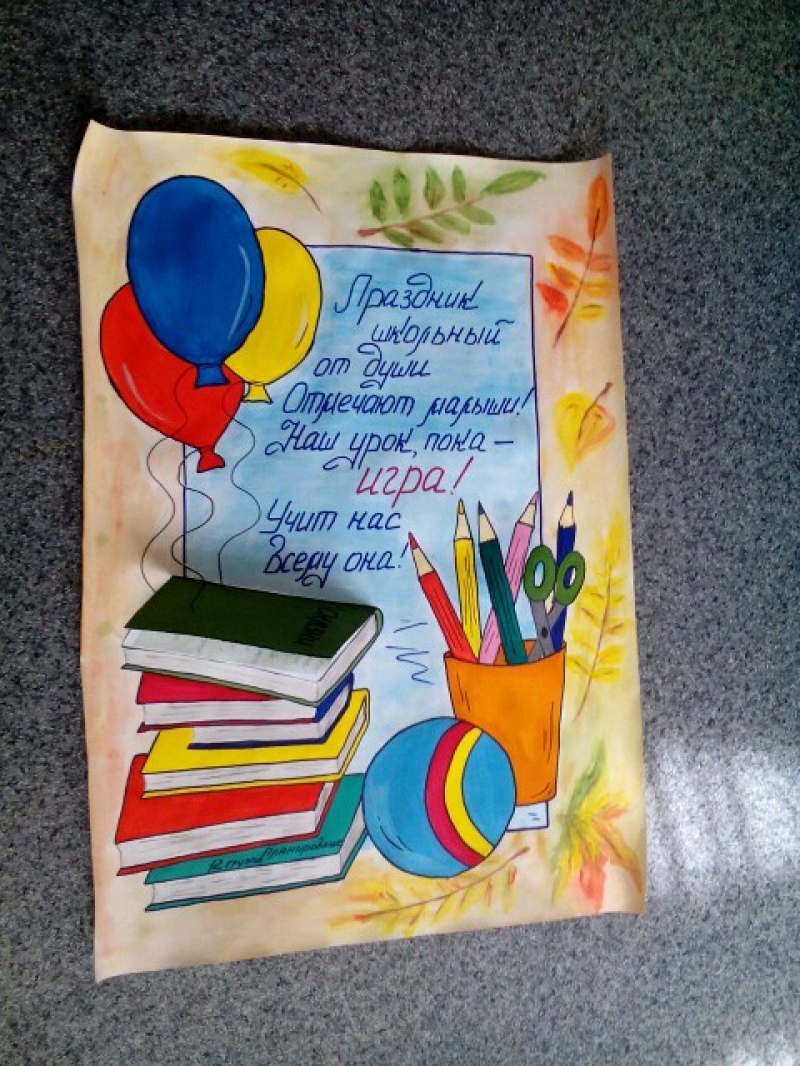 Праздник
школьный
от души
Отмечают малыши!
Наш урок, пока —
игра!
Учит нас
Всему она!
Сказки
12 группа Планирование